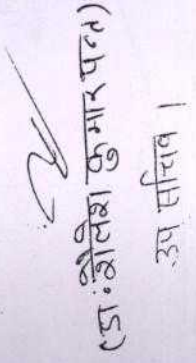 (डा॰ शैलेश कुमार पन्त)
उप सचिव।